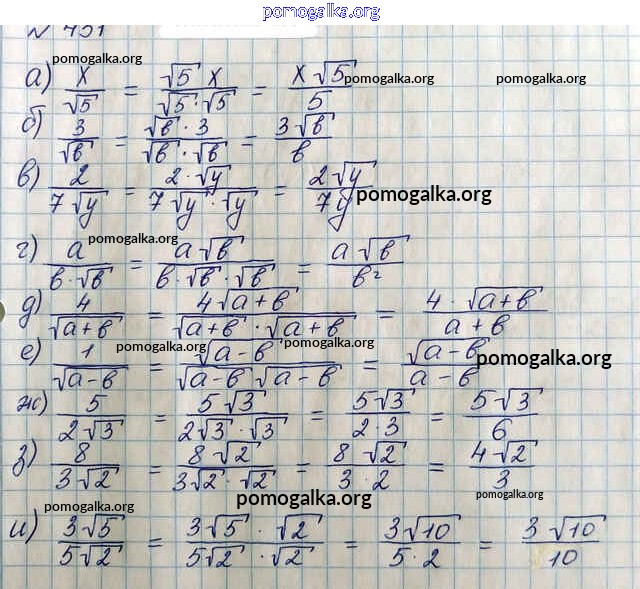 pomogalka.org
№ 431
pomogalka.org
а) x/√5 = √5 x/√5·√5 = x√5/5 pomogalka.org pomogalka.org
б) 3/√b = √b · 3/√b · √b = 3√b/b
в) 2/7√y = 2·√y/7√y · √y = 2√y/7y pomogalka.org
pomogalka.org
г) a/b·√b = a√b/b·√b·√b = a√b/b²
д) 4/√a+b = 4√a+b/√a+b · √a+b = 4 · √a+b/a+b
pomogalka.org pomogalka.org
е) 1/√a-b = √a-b/√a-b √a-b = √a-b/a-b pomogalka.org
ж) 5/2√3 = 5√3/2√3 · √3 = 5√3/2·3 = 5√3/6
з) 8/3√2 = 8√2/3√2 · √2 = 8√2/3·2 = 4√2/3
pomogalka.org pomogalka.org pomogalka.org
и) 3√5/5√2 = 3√5 · √2/5√2 · √2 = 3√10/5·2 = 3√10/10